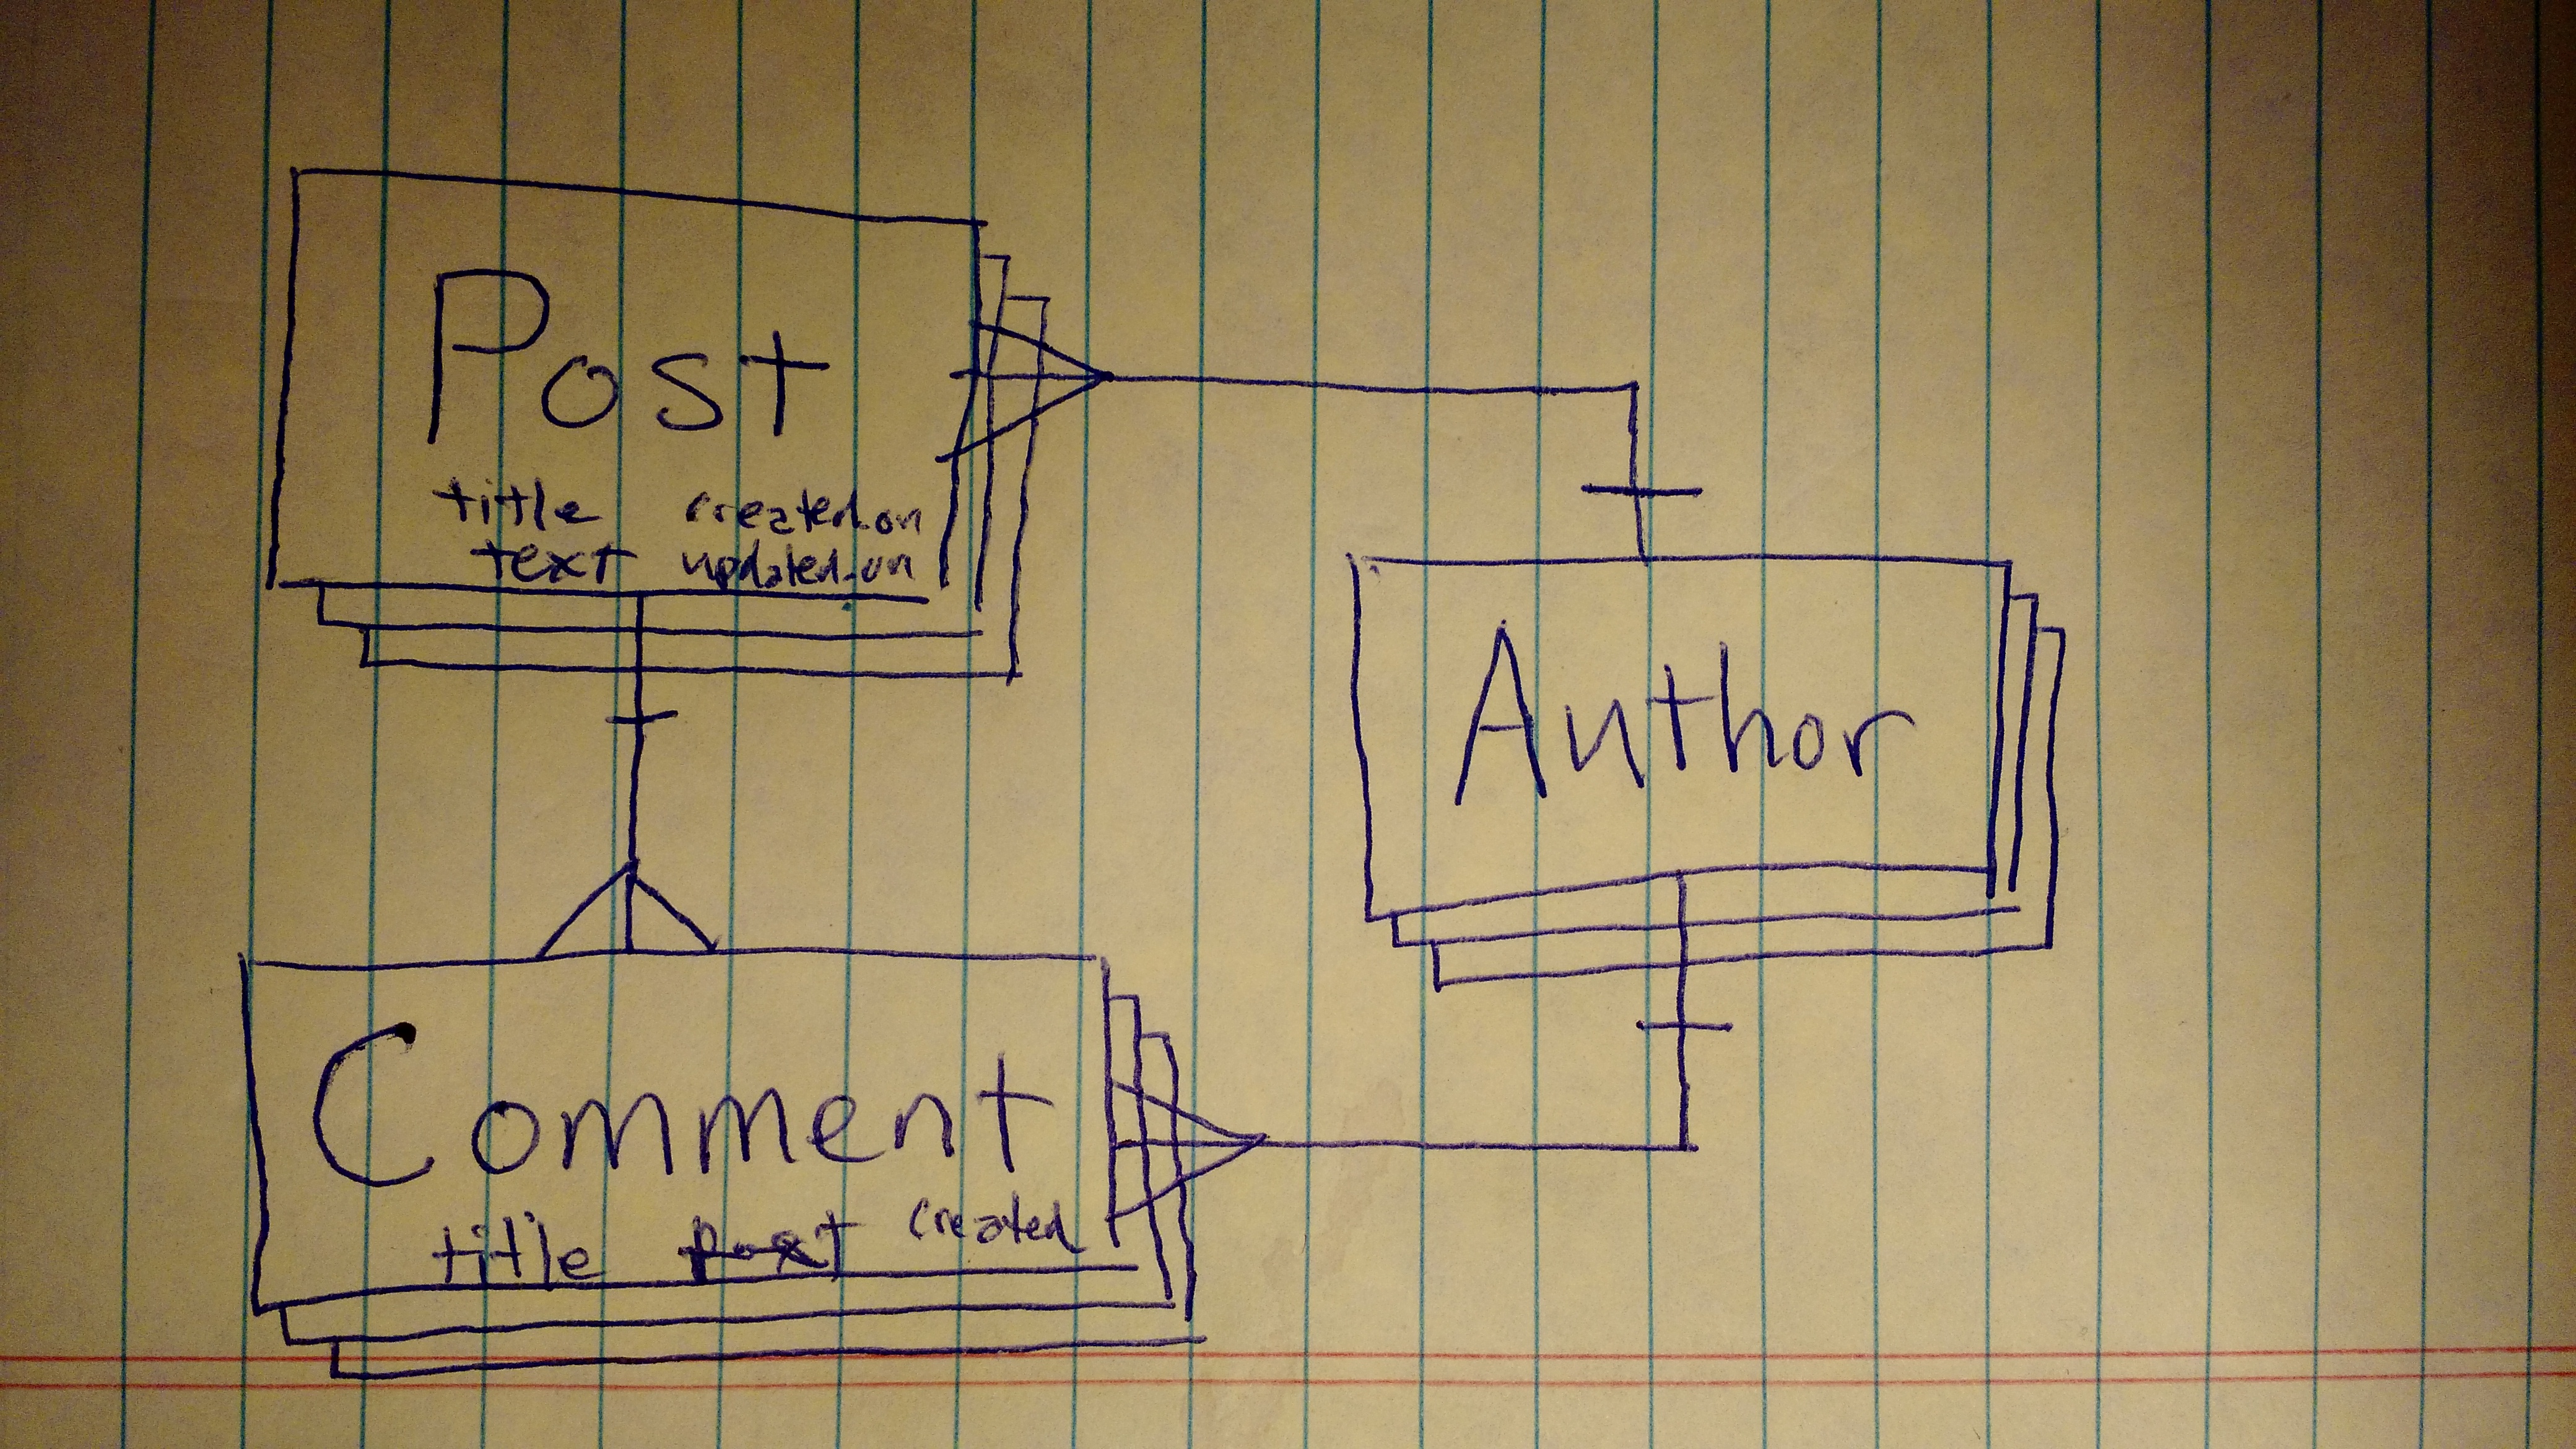 Post
title created_on
text updated_on
Author
Comment
title created